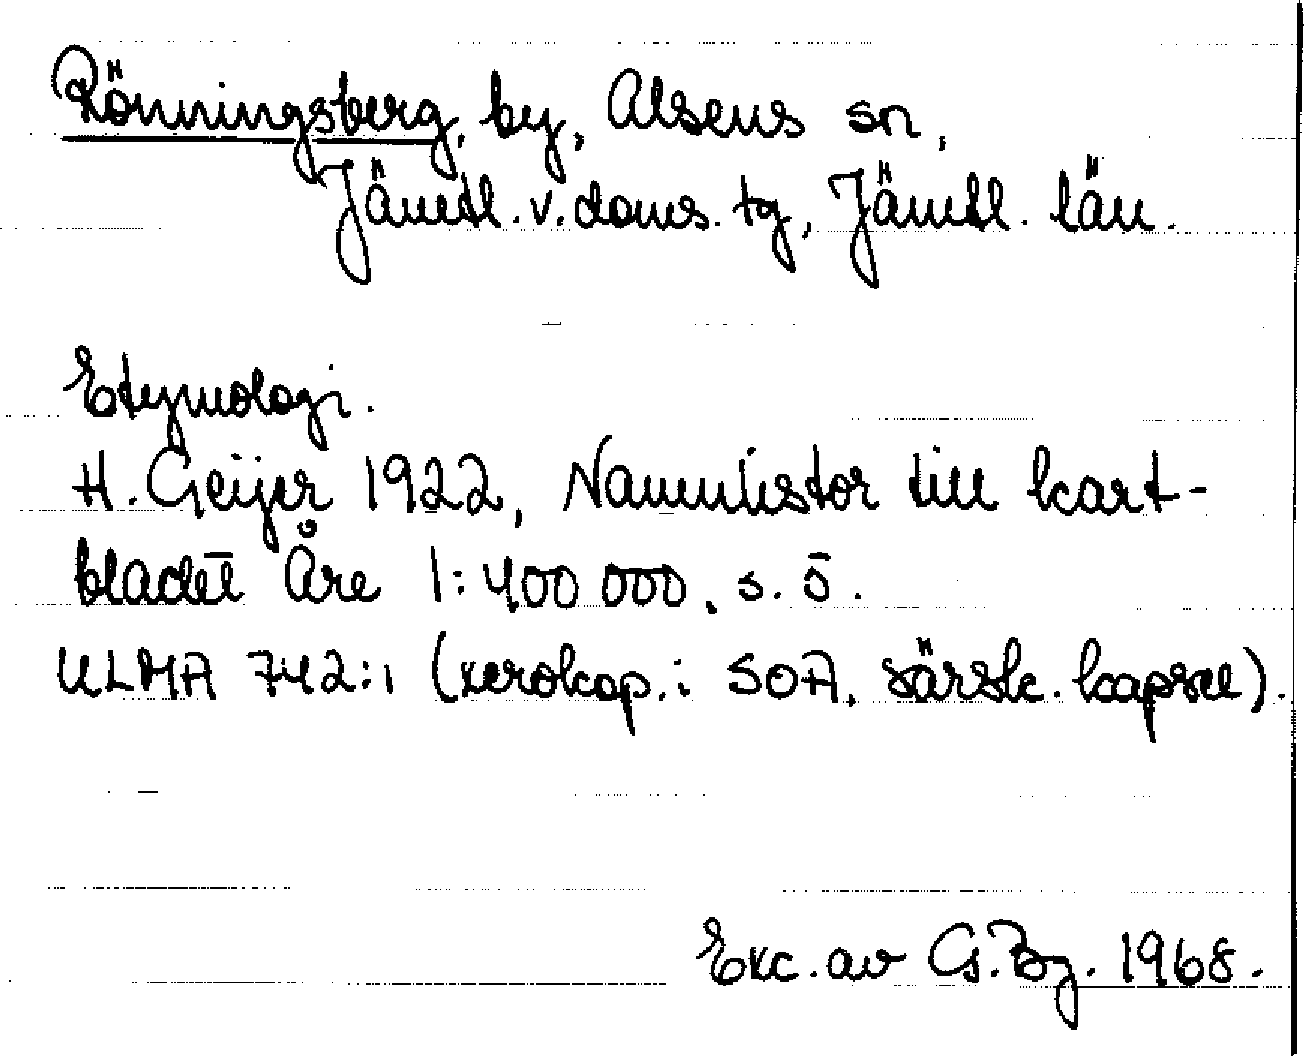 Rönningsberg, by, Alsens sn,
Jämtl. v. doms. tg, Jämtl. län.
Etymologi.
H. Geijer 1922, Namnlistor till kart-
bladet Åre 1:400 000, s. 5.
ULMA 742:1 (xerokop. i SOA, särsk. kapsel).
Exc. av G. By. 1968.